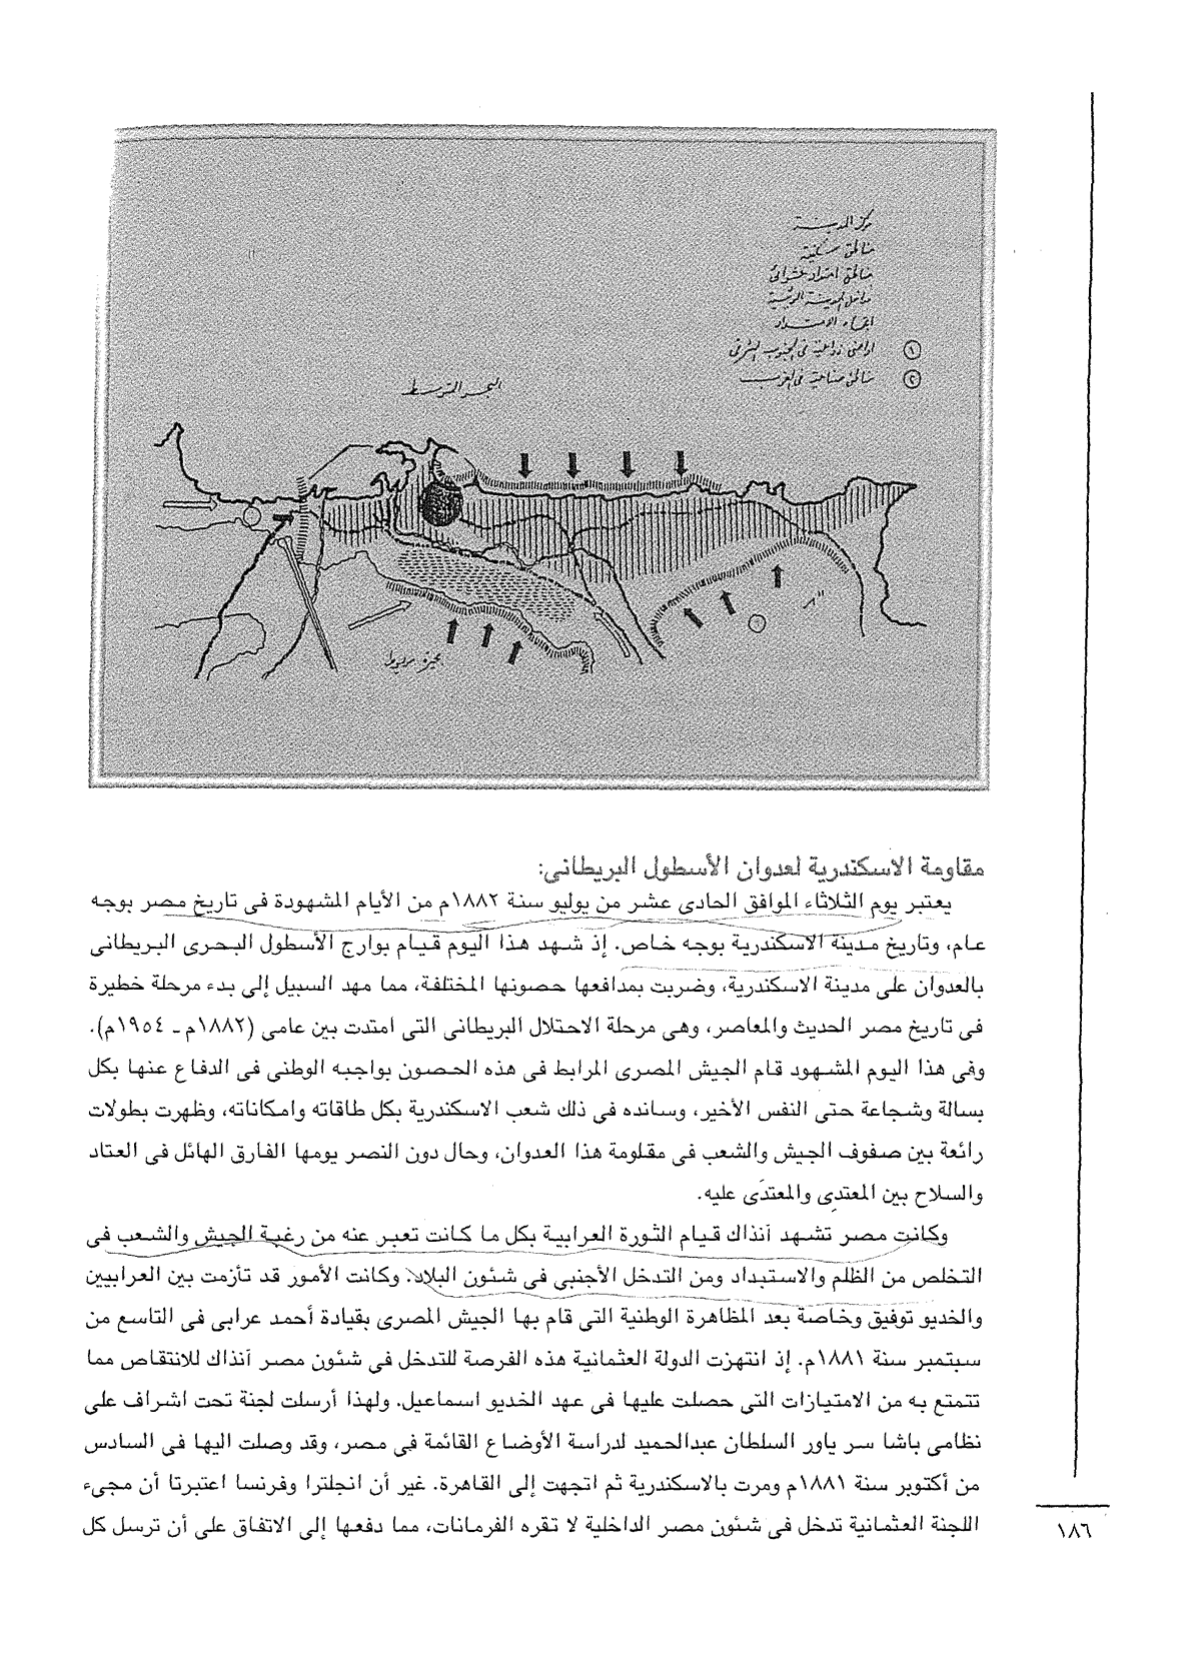 مركز المدينة
مناطق سكنية
مناطق امتداد عشوائى
مداخل المدينة الرئيسية
اتجاه الامتداد
١ اراضى زراعية فى الجنوب الشرقى
٢ مناطق صناعية فى الغرب
البحر المتوسط
بحيرة مريوط
مقاومة الاسكندرية لعدوان الأسطول البريطانى:
يعتبر يوم الثلاثاء الموافق الحادى عشر من يوليو سنة ١٨٨٢م من الأيام المشهودة فى تاريخ مصر بوجه
عام، وتاريخ مدينة الاسكندرية بوجه خاص. إذ شهد هذا اليوم قيام بوارج الأسطول البحرى البريطانى
بالعدوان على مدينة الاسكندرية، وضربت بمدافعها حصونها المختلفة، مما مهد السبيل إلى بدء مرحلة خطيرة
فى تاريخ مصر الحديث والمعاصر، وهى مرحلة الاحتلال البريطانى التى امتدت بين عامى (١٨٨٢م - ١٩٥٤م).
وفى هذا اليوم المشهود قام الجيش المصرى المرابط فى هذه الحصون بواجبه الوطنى فى الدفاع عنها بكل
بسالة وشجاعة حتى النفس الأخير، وسانده فى ذلك شعب الاسكندرية بكل طاقاته وامكاناته، وظهرت بطولات
رائعة بين صفوف الجيش والشعب فى مقلومة هذا العدوان، وحال دون النصر يومها الفارق الهائل فى العتاد
والسلاح بين المعتدِى والمعتدَى عليه.
وكانت مصر تشهد آنذاك قيام الثورة العرابية بكل ما كانت تعبر عنه من رغبة الجيش والشعب فى
التخلص من الظلم والاستبداد ومن التدخل الأجنبى فى شئون البلاد. وكانت الأمور قد تأزمت بين العرابيين
والخديو توفيق وخاصة بعد المظاهرة الوطنية التى قام بها الجيش المصرى بقيادة أحمد عرابى فى التاسع من
سبتمبر سنة ١٨٨١م. إذ انتهزت الدولة العثمانية هذه الفرصة للتدخل فى شئون مصر آنذاك للانتقاص مما
تتمتع به من الامتيازات التى حصلت عليها فى عهد الخديو اسماعيل. ولهذا أرسلت لجنة تحت اشراف على
نظامى باشا سر ياور السلطان عبدالحميد لدراسة الأوضاع القائمة فى مصر، وقد وصلت اليها فى السادس
من أكتوبر سنة ١٨٨١م ومرت بالاسكندرية ثم اتجهت إلى القاهرة. غير أن انجلترا وفرنسا اعتبرتا أن مجىء
اللجنة العثمانية تدخل فى شئون مصر الداخلية لا تقره الفرمانات، مما دفعها إلى الاتفاق على أن ترسل كل
١٨٦